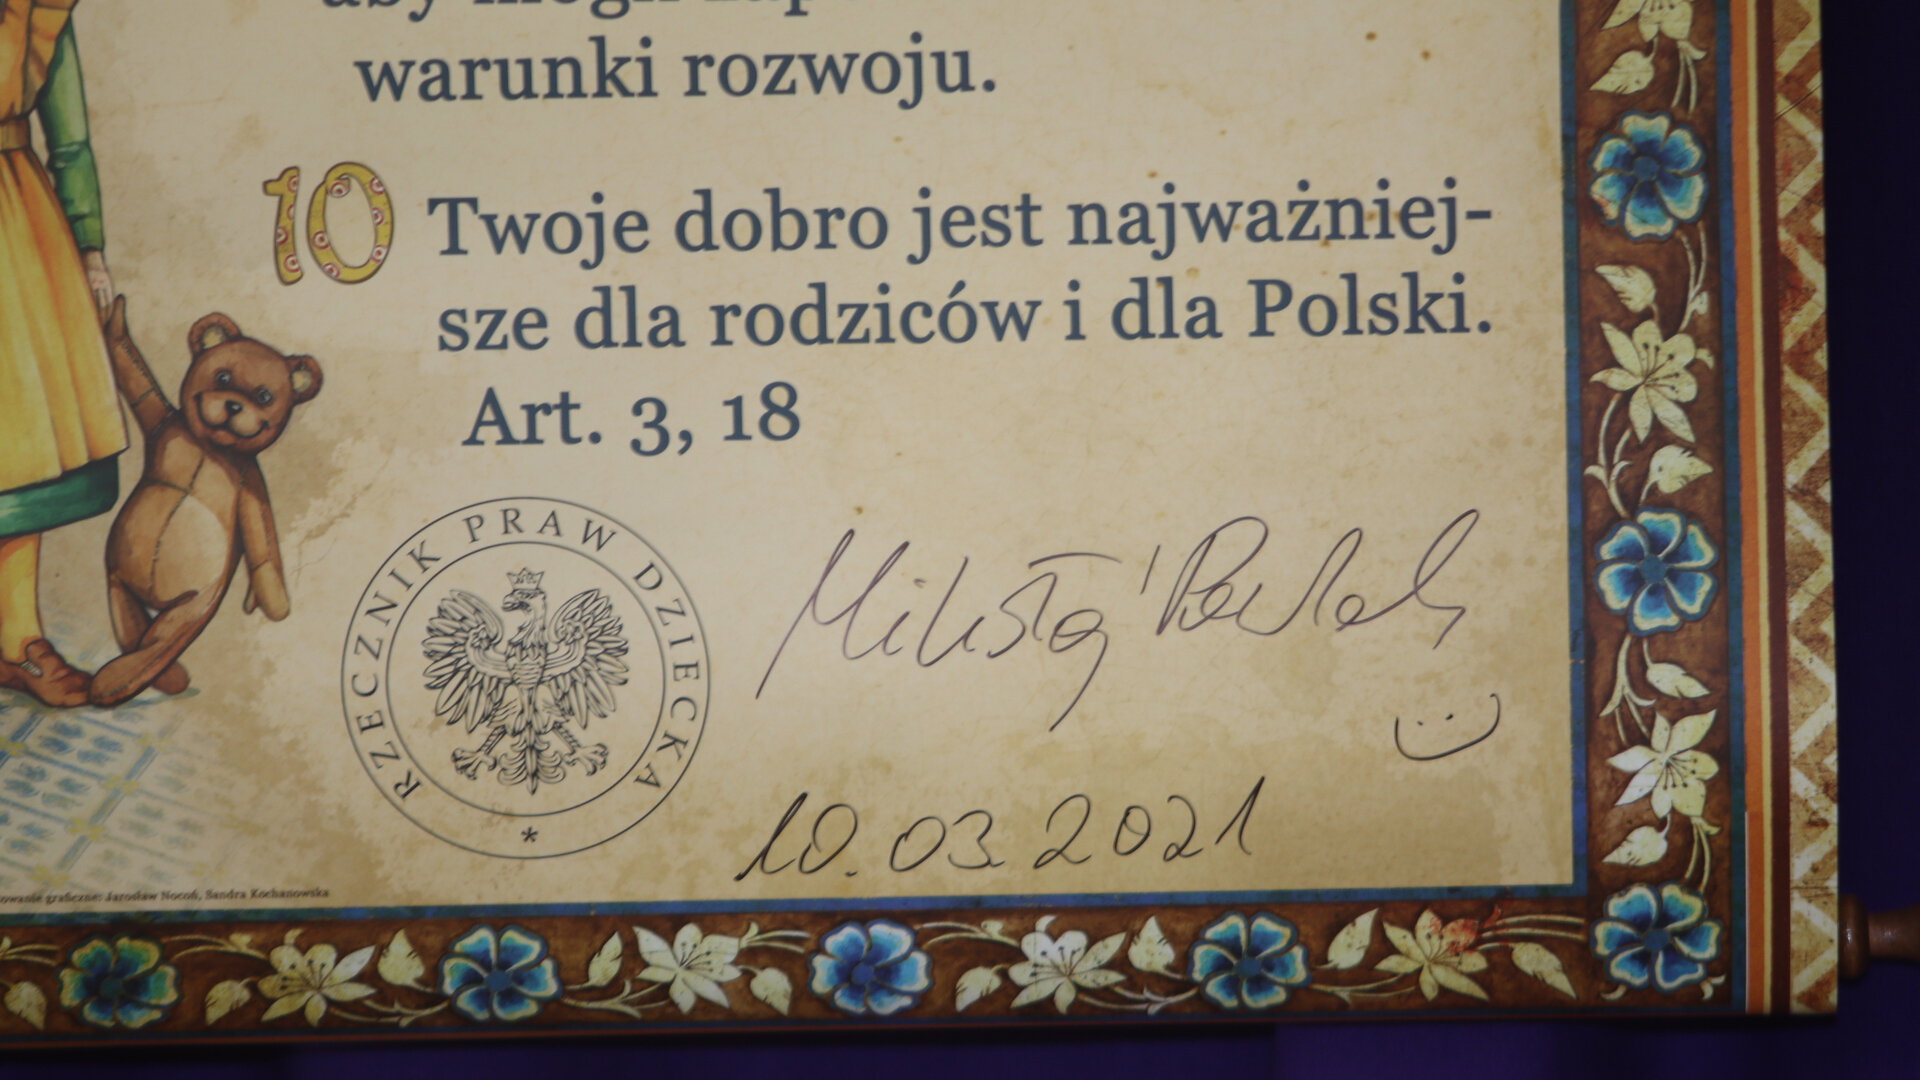 aby mogli
warunki rozwoju.
10 Twoje dobro jest najważniej-
sze dla rodziców i dla Polski.
Art. 3, 18
RZECZNIK PRAW DZIECKA
*
Mikołaj Pawlak
10.03.2021
graficzne: Jarosław Nocoń, Sandra Kochanowska